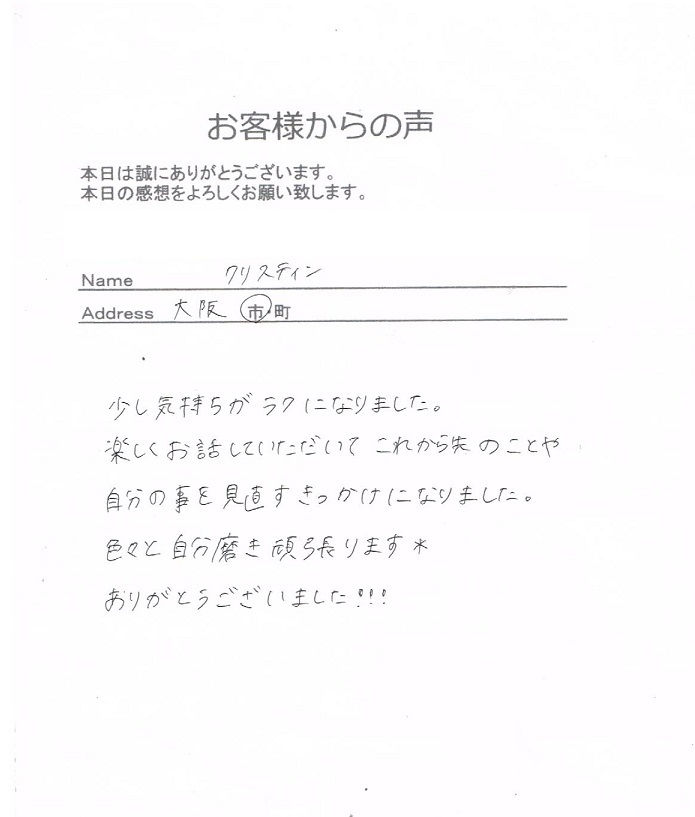 お客様からの声
本日は誠にありがとうございます。
本日の感想をよろしくお願い致します。
Name クリスティン
Address 大阪 市・町
少し気持ちがラクになりました。
楽しくお話していただいて これから先のことや
自分の事を見直すきっかけになりました。
色々と自分磨き頑張ります*
ありがとうございました!!!